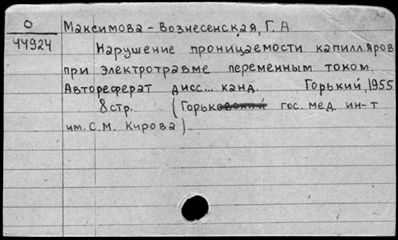 О
44924
Максимова-Вознесенская, Г. А
Нарушение проницаемости капилляров
при электротравме переменным током.
Автореферат дисс... канд. Горький, 1955
8 стр. (Горьковский гос. мед. ин-т
им. С.М. Кирова).